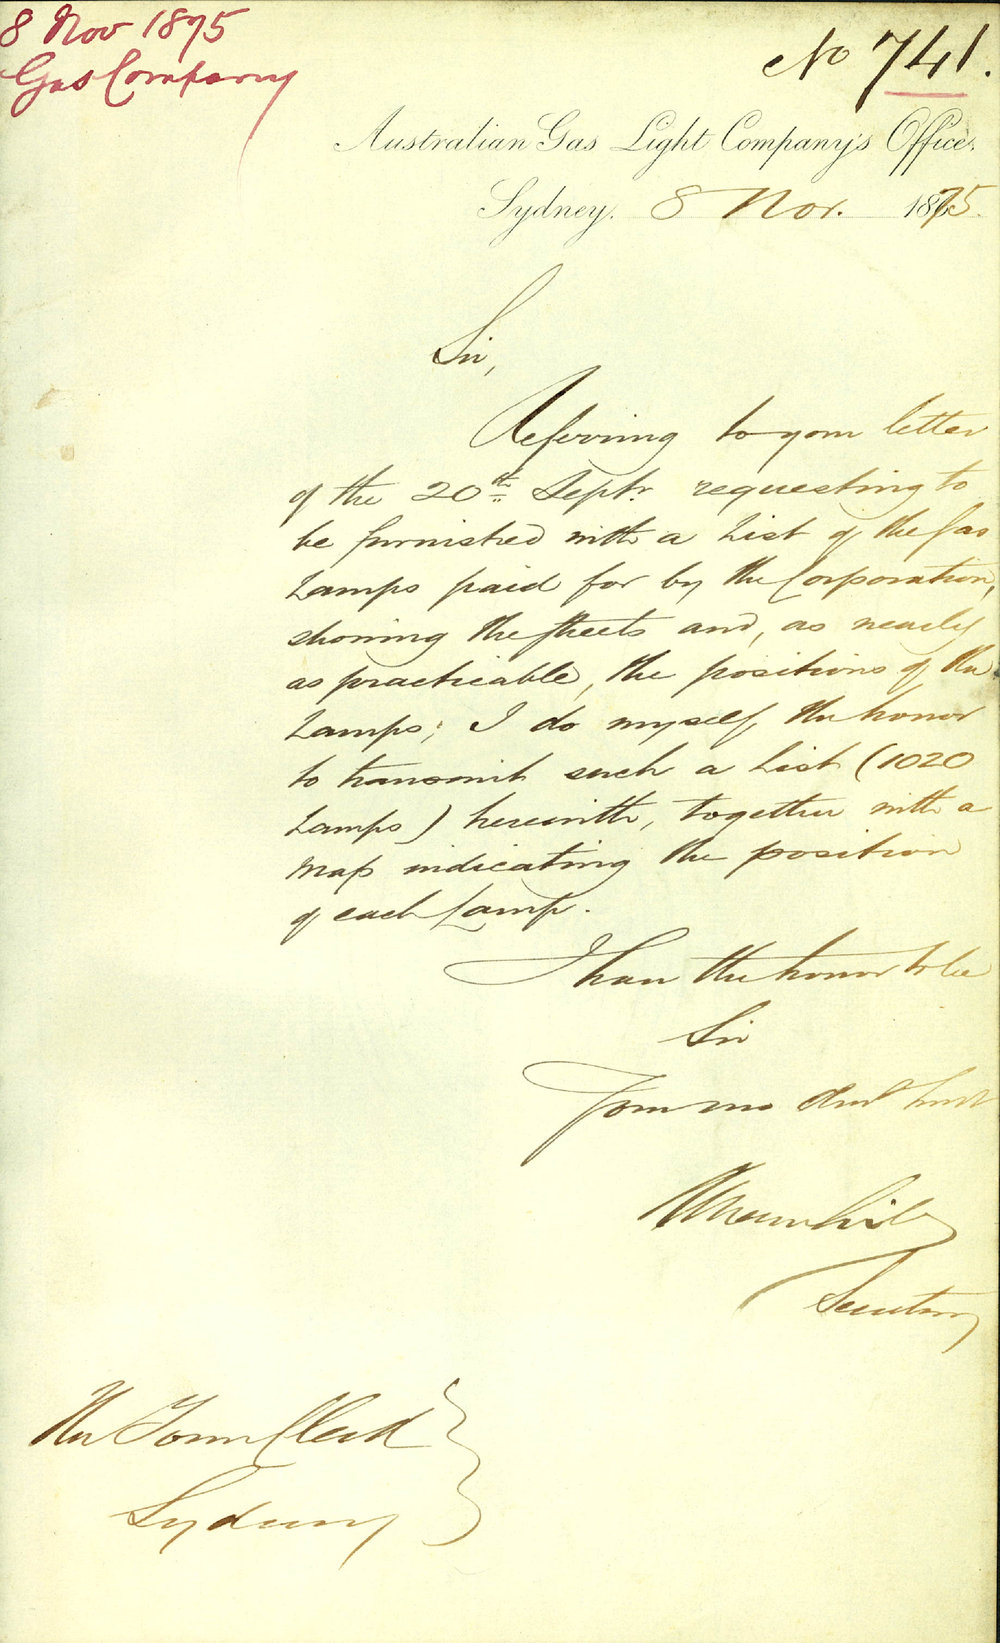 8 Nov 1875
Gas Company
No 741.
Australian Gas Light Company's Office.
Sydney. 8 Nov. 1875.
Sir,
Referring to your letter
of the 20th Septr. requesting to
be furnished with a List of the Gas
Lamps paid for by the Corporation,
showing the streets and, as nearly
as practicable, the positions of the
Lamps; I do myself the honor
to transmit such a List (1020
Lamps) herewith, together with a
Map indicating the position
of each Lamp.
I have the honor to be
Sir
Your mo Obdt
Secretary
The Town Clerk
Sydney